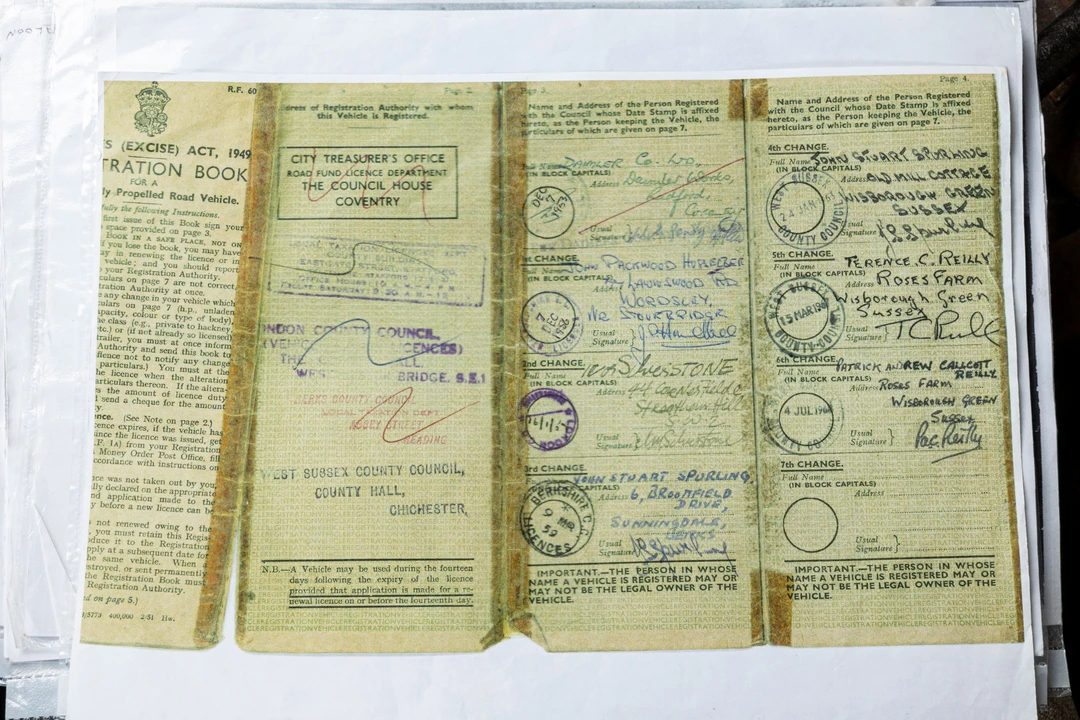 R.F. 60
S (EXCISE) ACT, 1949
TRATION BOOK
FOR A
ly Propelled Road Vehicle.
lly the following Instructions.
first issue of this Book sign your
space provided on page 3.
BOOK IN A SAFE PLACE, NOT ON
f you lose the book, you may have
ay in renewing the licence or in
vehicle; and you should report
your Registration Authority.
culars on page 7 are not correct,
tration Authority at once.
e any change in your vehicle which
lars on page 7 (h.p., unladen
pacity, colour or type of body),
he class (e.g., private to hackney,
ry) or (if not already so licensed)
trailer, you must at once inform
Authority and send this book to
llence not to notify any change
particulars.) You must at the
the licence when the alteration
articulars thereon. If the altera
s the amount of licence duty
send a cheque for the amount
nce. (See Note on page 2.)
icence expires, if the vehicle has
ince the licence was issued, get
F. 1A) from your Registration
Money Order Post Office, fill
ccordance with instructions on
nce was not taken out by you,
lly declared on the appropriate
d application made to the
y before a new licence can be
not renewed owing to the
you must retain this Regis-
duce it to the Registration
pply at a subsequent date for
he same vehicle. When
stroyed, or sent permanently
he Registration Book must
Registration Authority.
ed on page 5.)
5773 400,000 2/51 Hw.
Page 2.
dress of Registration Authority with whom
this Vehicle is Registered.
CITY TREASURER'S OFFICE
ROAD FUND LICENCE DEPARTMENT
THE COUNCIL HOUSE
COVENTRY
NDON COUNTY COUNCIL,
(VEHIC ENCES)
THE ALL,
WES BRIDGE. S.E.1
BERKS COUNTY COUNCIL
LOCAL TAXATION DEPT
ABBEY STREET
READING
WEST SUSSEX COUNTY COUNCIL,
COUNTY HALL,
CHICHESTER,
N.B.—A Vehicle may be used during the fourteen
days following the expiry of the licence
provided that application is made for a re-
newal licence on or before the fourteenth day.
Page 3.
Name and Address of the Person Registered
with the Council whose Date Stamp is affixed
hereto, as the Person keeping the Vehicle, the
particulars of which are given on page 7.
Full Name DAIMLER Co. LTD,
Address Daimler Works,
Coventry
DEC 1953
Usual
Signature
1st CHANGE.
JOHN PACKWOOD
WORDSLEY,
Nr STOURBRIDGE
Usual
Signature
2nd CHANGE.
Full Name
(IN BLOCK CAPITALS)
Address
Usual
Signature
3rd CHANGE.
Full Name JOHN STUART SPURLING,
(IN BLOCK CAPITALS)
Address 6, BROOMFIELD
DRIVE,
SUNNINGDALE,
BERKS
BERKSHIRE C.C.
9 MAR 59
LICENCES
Usual
Signature
IMPORTANT.—THE PERSON IN WHOSE
NAME A VEHICLE IS REGISTERED MAY OR
MAY NOT BE THE LEGAL OWNER OF THE
VEHICLE.
Page 4.
Name and Address of the Person Registered
with the Council whose Date Stamp is affixed
hereto, as the Person keeping the Vehicle, the
particulars of which are given on page 7.
4th CHANGE.
Full Name JOHN STUART SPURLING
(IN BLOCK CAPITALS)
Address OLD MILL COTTAGE
WISBOROUGH GREEN
SUSSEX
WEST SUSSEX
COUNTY COUNCIL
Usual
Signature J S Spurling
5th CHANGE.
Full Name TERENCE. C. REILLY
(IN BLOCK CAPITALS)
Address ROSES FARM
Wisborough Green
Sussex
WEST SUSSEX
15 MAR 196
COUNTY COUNCIL
Usual
Signature T C Reilly
6th CHANGE.
Full Name PATRICK ANDREW CALLCOTT
REILLY
(IN BLOCK CAPITALS)
Address ROSES FARM
WISBOROUGH GREEN
Sussex
4 JUL 196
Usual
Signature Pac. Reilly
7th CHANGE.
Full Name
(IN BLOCK CAPITALS)
Address
Usual
Signature
IMPORTANT.—THE PERSON IN WHOSE
NAME A VEHICLE IS REGISTERED MAY OR
MAY NOT BE THE LEGAL OWNER OF THE
VEHICLE.